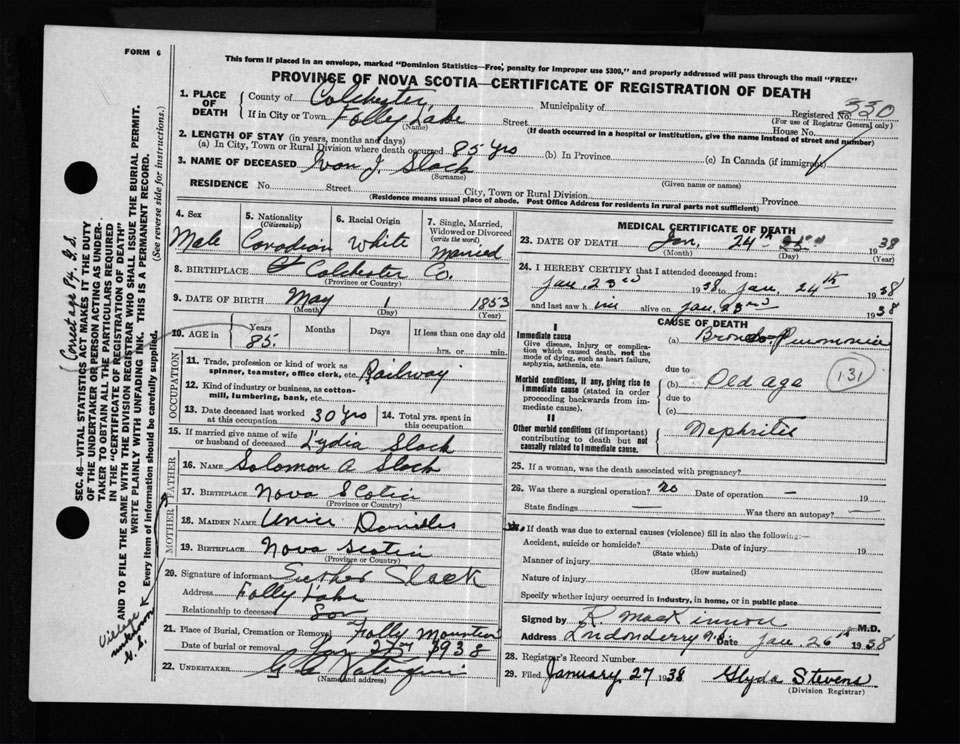 FORM 6
This form if placed in an envelope, marked "Dominion Statistics—Free, penalty for improper use $300," and properly addressed will pass through the mail "FREE"
PROVINCE OF NOVA SCOTIA—CERTIFICATE OF REGISTRATION OF DEATH
1. PLACE OF DEATH County of Colchester, Municipality of Registered No. 330
(For use of Registrar General only)
If in City or Town Folly Lake Street House No.
(Name) (If death occurred in a hospital or institution, give the name instead of street and number)
2. LENGTH OF STAY (in years, months and days)
(a) In City, Town or Rural Division where death occurred 85 yrs (b) In Province (c) In Canada (if immigrant)
3. NAME OF DECEASED J. Slack
(Surname) (Given name or names)
RESIDENCE No. Street City, Town or Rural Division Province
(Residence means usual place of abode. Post Office Address for residents in rural parts not sufficient)
4. Sex Male
5. Nationality (Citizenship) Canadian
6. Racial Origin White
7. Single, Married, Widowed or Divorced (write the word) Married
8. BIRTHPLACE Colchester Co.
(Province or Country)
9. DATE OF BIRTH May 1 1853
(Month) (Day)
10. AGE in Years 85 Months Days If less than one day old
hrs. or min.
OCCUPATION
11. Trade, profession or kind of work as spinner, teamster, office clerk, etc. Railway
12. Kind of industry or business, as cotton-mill, lumbering, bank, etc.
13. Date deceased last worked at this occupation 30 yrs
14. Total yrs. spent in this occupation.
15. If married give name of wife or husband of deceased Lydia Slack
FATHER
16. NAME Solomon A Slack
17. BIRTHPLACE Nova Scotia
(Province or Country)
MOTHER
18. MAIDEN NAME
19. BIRTHPLACE Nova Scotia
(Province or Country)
20. Signature of informant Slack
Address Folly Lake
Relationship to deceased Son
21. Place of Burial, Cremation or Removal Folly Mountain
Date of burial or removal Jan 27 1938
22. UNDERTAKER
(Name and address)
MEDICAL CERTIFICATE OF DEATH
23. DATE OF DEATH Jan, 24th 1938
(Month) (Day) (Year)
24. I HEREBY CERTIFY that I attended deceased from:
Jan. 23rd 1938 to Jan. 24th 1938
and last saw him alive on Jan. 23rd 1938
CAUSE OF DEATH
I
Immediate cause
Give disease, injury or complication which caused death, not the mode of dying, such as heart failure, asphyxia, asthenia, etc.
(a) Broncho Pneumonia
due to
Morbid conditions, if any, giving rise to immediate cause (stated in order proceeding backwards from immediate cause).
(b) Old age
131
due to
(c)
II
Other morbid conditions (if important) contributing to death but not causally related to immediate cause.
Nephritis
25. If a woman, was the death associated with pregnancy?
26. Was there a surgical operation? no Date of operation — 19
State findings — Was there an autopsy? —
If death was due to external causes (violence) fill in also the following:—
Accident, suicide or homicide? Date of injury 19
(State which)
Manner of injury
(How sustained)
Nature of injury
Specify whether injury occurred in industry, in home, or in public place
Signed by R. MacKinnon M.D.
Address Londonderry N.S. Date Jan. 26th 1938
28. Registrar's Record Number
29. Filed January 27 1938 Glyda Stevens
(Division Registrar)
SEC. 46—VITAL STATISTICS ACT MAKES IT THE DUTY
OF THE UNDERTAKER OR PERSON ACTING AS UNDER-
TAKER TO OBTAIN ALL THE PARTICULARS REQUIRED
IN THE "CERTIFICATE OF REGISTRATION OF DEATH"
AND TO FILE THE SAME WITH THE DIVISION REGISTRAR WHO SHALL ISSUE THE BURIAL PERMIT.
WRITE PLAINLY WITH UNFADING INK. THIS IS A PERMANENT RECORD.
Every item of information should be carefully supplied. (See reverse side for instructions.)
Correct age 84. G.S.
Village unknown G.S.